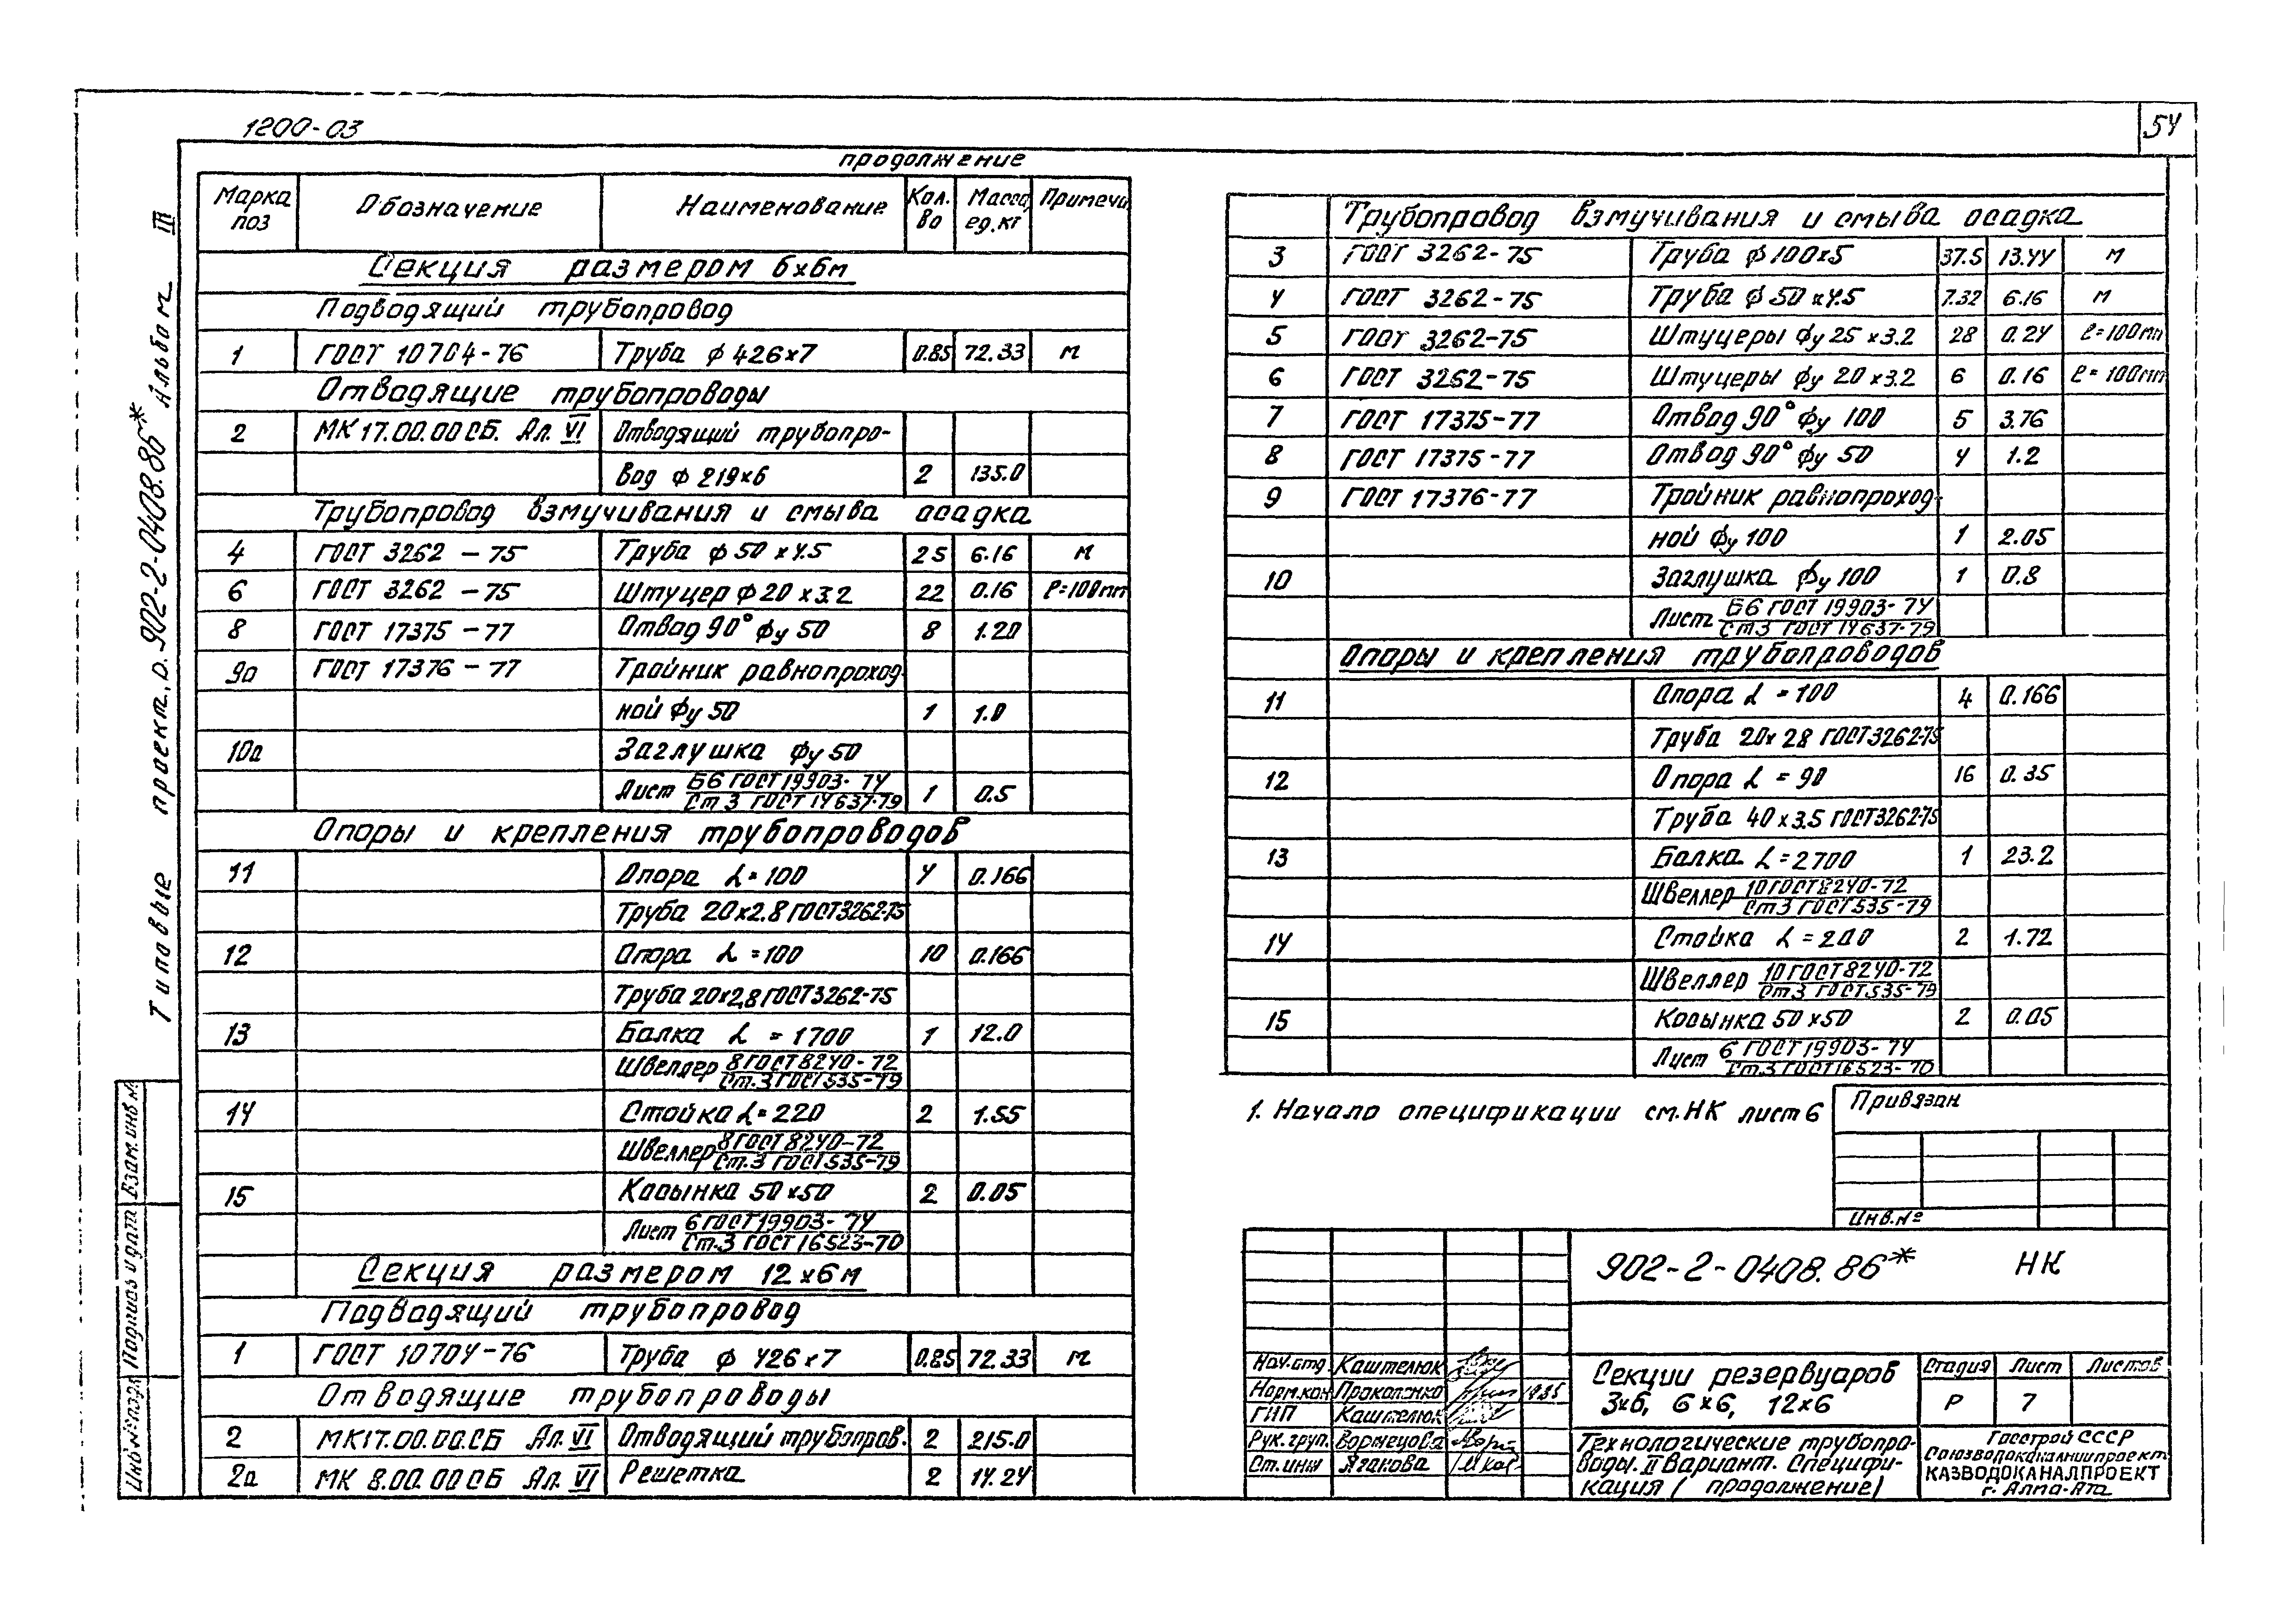 1200-03
54
продолжение
Марка поз | Обозначение | Наименование | Кол. во | Масса ед.кг | Примеча
Секция размером 6х6м
Подводящий трубопровод
1 | ГОСТ 10704-76 | Труба ф 426х7 | 0.85 | 72.33 | м
Отводящие трубопроводы
2 | МК 17.00.00 СБ. Ал. VI | Отводящий трубопро-
вод ф 219х6 | 2 | 135.0
Трубопровод взмучивания и смыва осадка
4 | ГОСТ 3262 - 75 | Труба ф 50 х 4.5 | 25 | 6.16 | м
6 | ГОСТ 3262 - 75 | Штуцер ф 20 х 3.2 | 22 | 0.16 | ℓ=100мм
8 | ГОСТ 17375 - 77 | Отвод 90° фу 50 | 8 | 1.20
9а | ГОСТ 17376 - 77 | Тройник равнопроход-
ной фу 50 | 1 | 1.0
10а | Заглушка фу 50
Лист Б6 ГОСТ 19903-74 / Ст 3 ГОСТ 14637-79 | 1 | 0.5
Опоры и крепления трубопроводов
11 | Опора L=100 | 4 | 0.166
Труба 20х2.8 ГОСТ3262-75
12 | Опора L=100 | 10 | 0.166
Труба 20х2,8 ГОСТ3262-75
13 | Балка L = 1700 | 1 | 12.0
Швеллер 8 ГОСТ 8240-72 / Ст.3 ГОСТ 535-79
14 | Стойка L=220 | 2 | 1.55
Швеллер 8 ГОСТ 8240-72 / Ст.3 ГОСТ 535-79
15 | Косынка 50х50 | 2 | 0.05
Лист 6 ГОСТ 19903-74 / Ст.3 ГОСТ 16523-70
Секция размером 12х6м
Подводящий трубопровод
1 | ГОСТ 10704-76 | Труба ф 426х7 | 0.85 | 72.33 | м
Отводящие трубопроводы
2 | МК17.00.00.СБ Ал. VI | Отводящий трубопров. | 2 | 215.0
2а | МК 8.00.00СБ Ал. VI | Решетка | 2 | 14.24
Трубопровод взмучивания и смыва осадка
3 | ГОСТ 3262-75 | Труба ф 100х5 | 37.5 | 13.44 | м
4 | ГОСТ 3262-75 | Труба ф 50 х4.5 | 7.32 | 6.16 | м
5 | ГОСТ 3262-75 | Штуцеры фу 25 х3.2 | 28 | 0.24 | ℓ=100мм
6 | ГОСТ 3262-75 | Штуцеры фу 20 х3.2 | 6 | 0.16 | ℓ=100мм
7 | ГОСТ 17375-77 | Отвод 90° фу 100 | 5 | 3.76
8 | ГОСТ 17375-77 | Отвод 90° фу 50 | 4 | 1.2
9 | ГОСТ 17376-77 | Тройник равнопроход-
ной фу 100 | 1 | 2.05
10 | Заглушка фу 100 | 1 | 0.8
Лист Б6 ГОСТ 19903-74 / Ст3 ГОСТ 14637-79
Опоры и крепления трубопроводов
11 | Опора L = 100 | 4 | 0.166
Труба 20х 28 ГОСТ3262-75
12 | Опора L = 90 | 16 | 0.35
Труба 40 х 3.5 ГОСТ3262-75
13 | Балка L=2700 | 1 | 23.2
Швеллер 10 ГОСТ 8240-72 / Ст3 ГОСТ 535-79
14 | Стойка L=200 | 2 | 1.72
Швеллер 10 ГОСТ 8240-72 / Ст3 ГОСТ 535-79
15 | Косынка 50 х50 | 2 | 0.05
Лист 6 ГОСТ 19903-74 / Ст.3 ГОСТ 16523-70
1. Начало спецификации см. НК лист 6
Привязан
Инв.№
902-2-0408.86* НК
Нач.отд. Каштелюк
Норм.кон Прокопенко 1985
ГИП Каштелюк
Рук.груп.
Ст.инж
Секции резервуаров
3х6, 6х6, 12х6
Стадия | Лист | Листов
Р | 7
Технологические трубопро-
воды. II Вариант. Специфи-
кация ( продолжение)
Госстрой СССР
Союзводоканалниипроект
КАЗВОДОКАНАЛПРОЕКТ
г. Алма-Ата
Типовые проект.р. 902-2-0408.86* Альбом III
Взам.инв.№
Подпись и дата
Инв.№подл